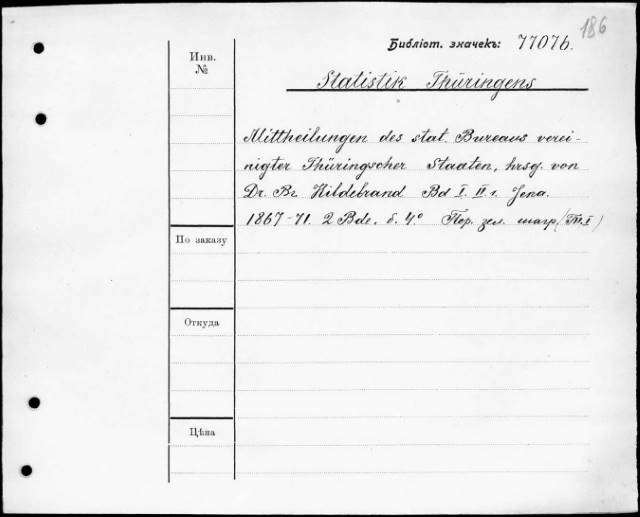 186
Библіот. значекъ: 77076.
Инв.
№
Statistik Thüringens
Mittheilungen des stat. Bureaus verei-
nigter Thüringscher Staaten, hrsg. von
Dr. Br. Hildebrand Bd I. II 1. Jena.
1867-71. 2 Bde. б. 4.º Пер. зел. шагр. (Th. I)
По заказу
Откуда
Цѣна